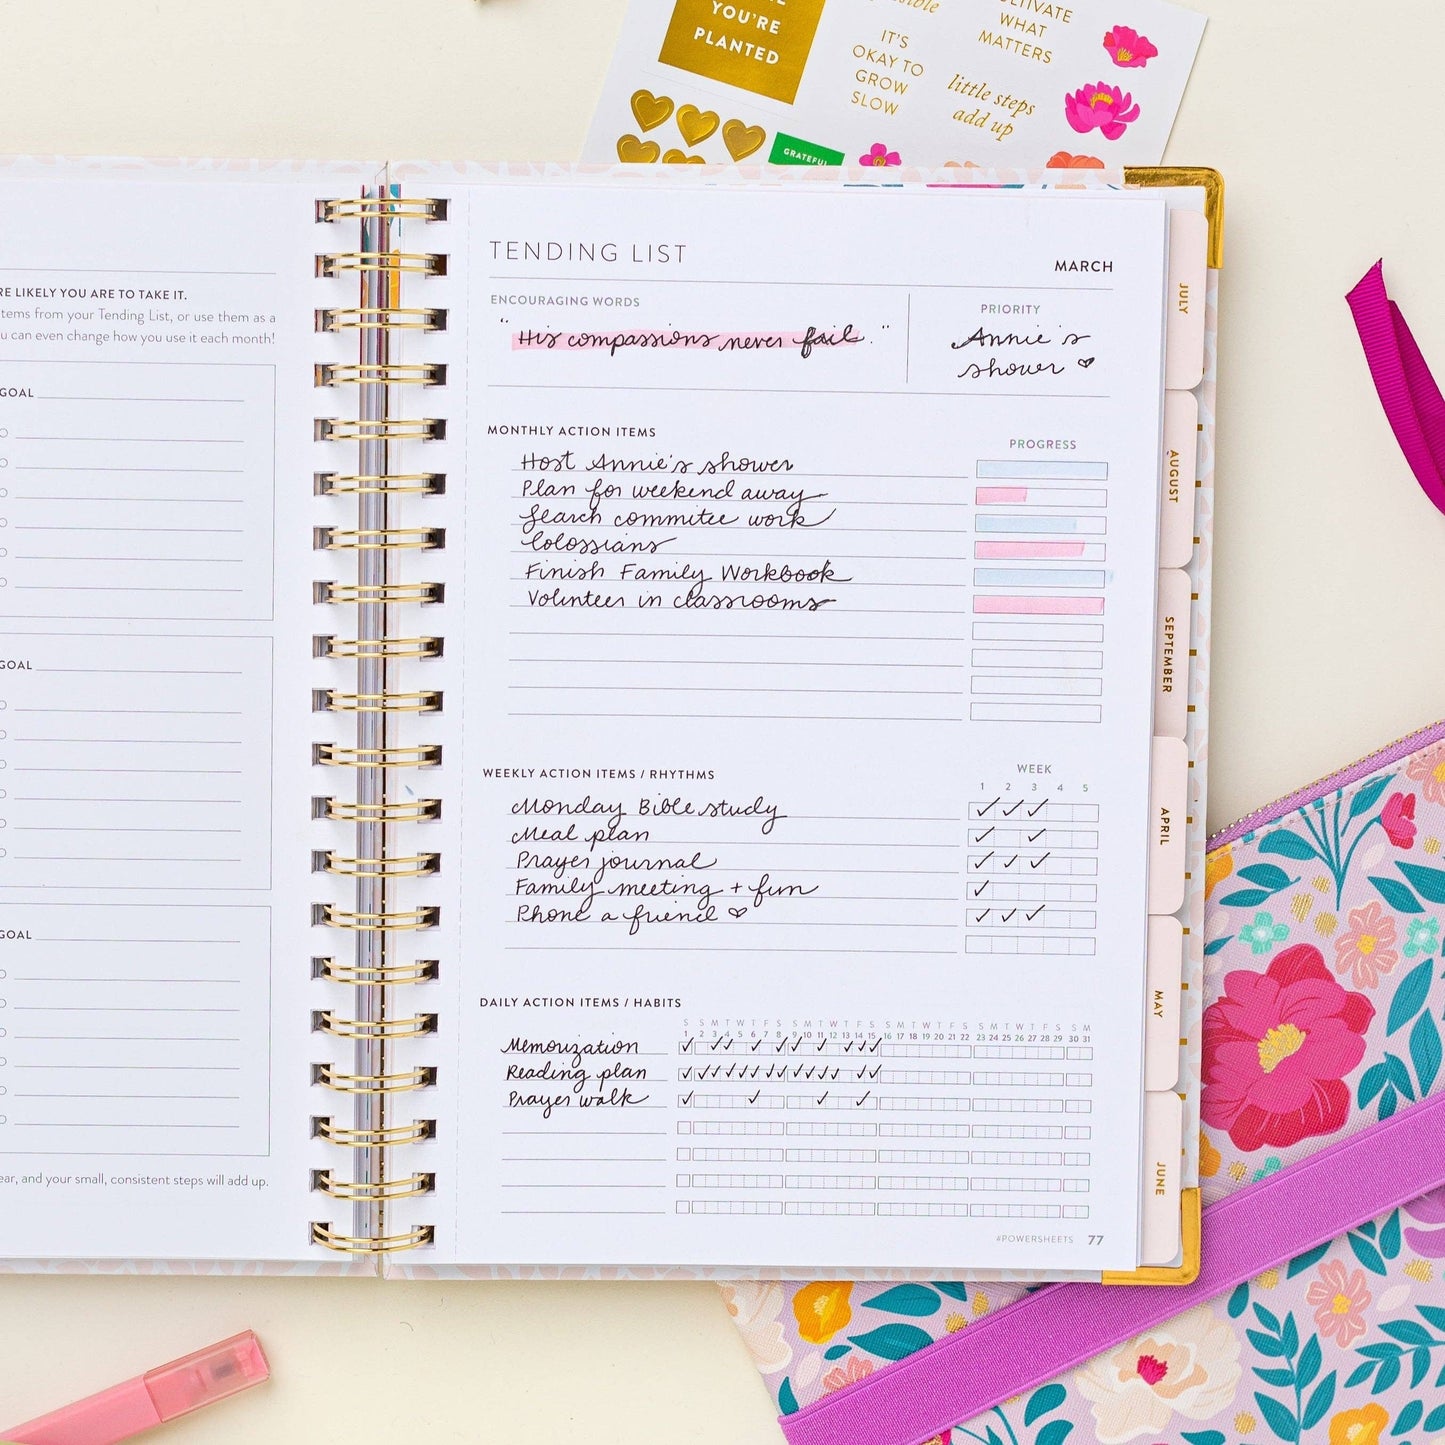 YOU'RE
PLANTED
CULTIVATE
WHAT
MATTERS
IT'S
OKAY TO
GROW
SLOW
little steps
add up
GRATEFUL
RE LIKELY YOU ARE TO TAKE IT.
tems from your Tending List, or use them as a
u can even change how you use it each month!
GOAL
GOAL
GOAL
ear, and your small, consistent steps will add up.
TENDING LIST
MARCH
ENCOURAGING WORDS
"His compassions never fail."
PRIORITY
Annie's
shower ♡
MONTHLY ACTION ITEMS
PROGRESS
Host Annie's shower
Plan for weekend away
Search commitee work
Colossians
Finish Family Workbook
Volunteer in classrooms
WEEKLY ACTION ITEMS / RHYTHMS
WEEK
1 2 3 4 5
Monday Bible study
Meal plan
Prayer journal
Family meeting + fun
Phone a friend ♡
DAILY ACTION ITEMS / HABITS
S S M T W T F S S M T W T F S S M T W T F S S M T W T F S S M
1 2 3 4 5 6 7 8 9 10 11 12 13 14 15 16 17 18 19 20 21 22 23 24 25 26 27 28 29 30 31
Memorization
Reading plan
Prayer walk
#POWERSHEETS 77
JULY
AUGUST
SEPTEMBER
APRIL
MAY
JUNE